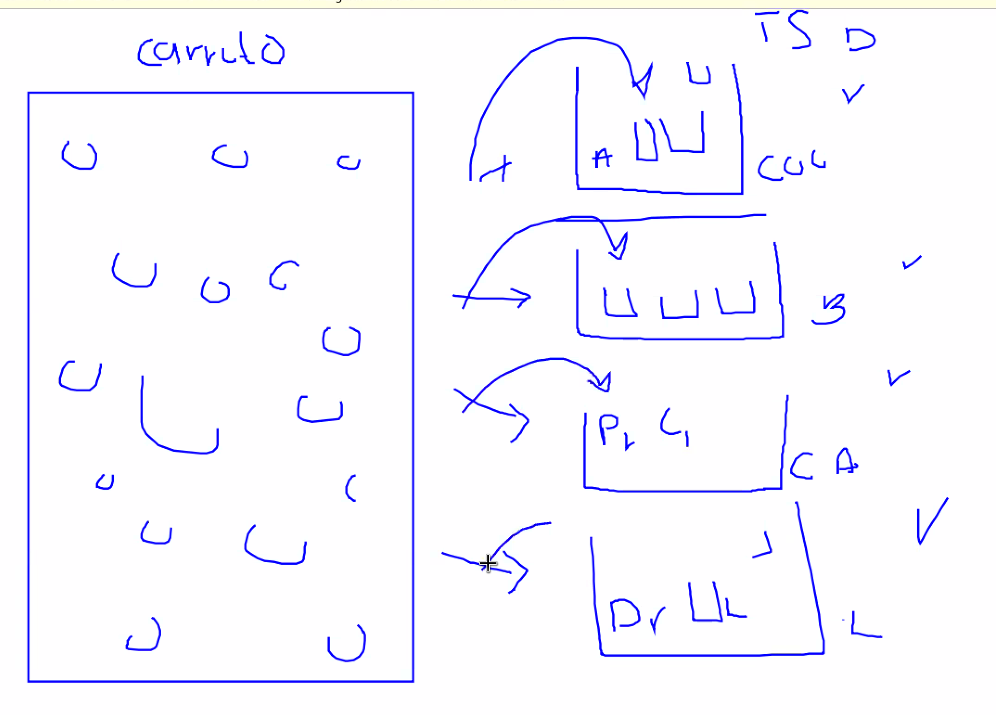 carruto
TS D
A
COC
B
Pr C1
CA
Dr
L